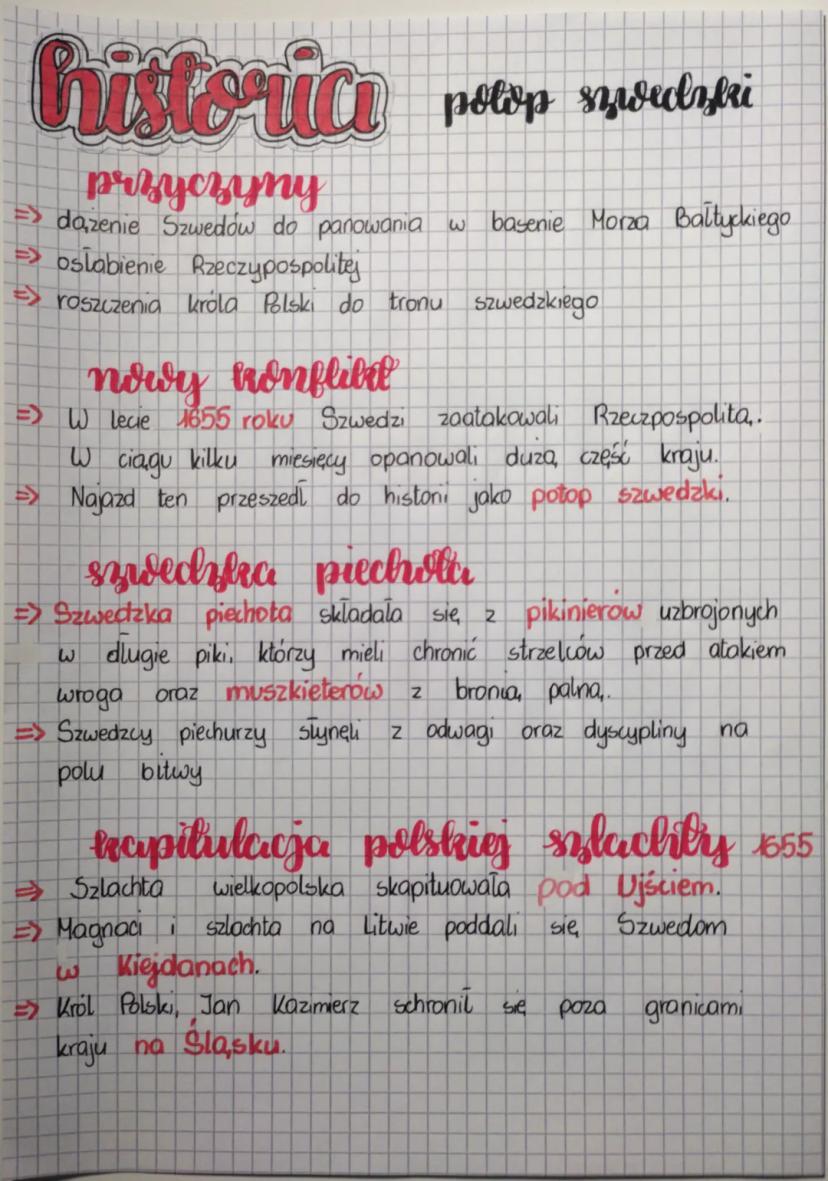 historia potop szwedzki
przyczyny
=> dążenie Szwedów do panowania w basenie Morza Bałtyckiego
=> osłabienie Rzeczypospolitej
=> roszczenia króla Polski do tronu szwedzkiego
nowy konflikt
=> W lecie 1655 roku Szwedzi zaatakowali Rzeczpospolitą.
W ciągu kilku miesięcy opanowali dużą część kraju.
=> Najazd ten przeszedł do historii jako potop szwedzki.
szwedzka piechota
=> Szwedzka piechota składała się z pikinierów uzbrojonych
w długie piki, którzy mieli chronić strzelców przed atakiem
wroga oraz muszkieterów z bronią palną.
=> Szwedzcy piechurzy słynęli z odwagi oraz dyscypliny na
polu bitwy
kapitulacja polskiej szlachty 1655
=> Szlachta wielkopolska skapituowała pod Ujściem.
=> Magnaci i szlachta na Litwie poddali się Szwedom
w Kiejdanach.
=> Król Polski, Jan Kazimierz schronił się poza granicami
kraju na Śląsku.